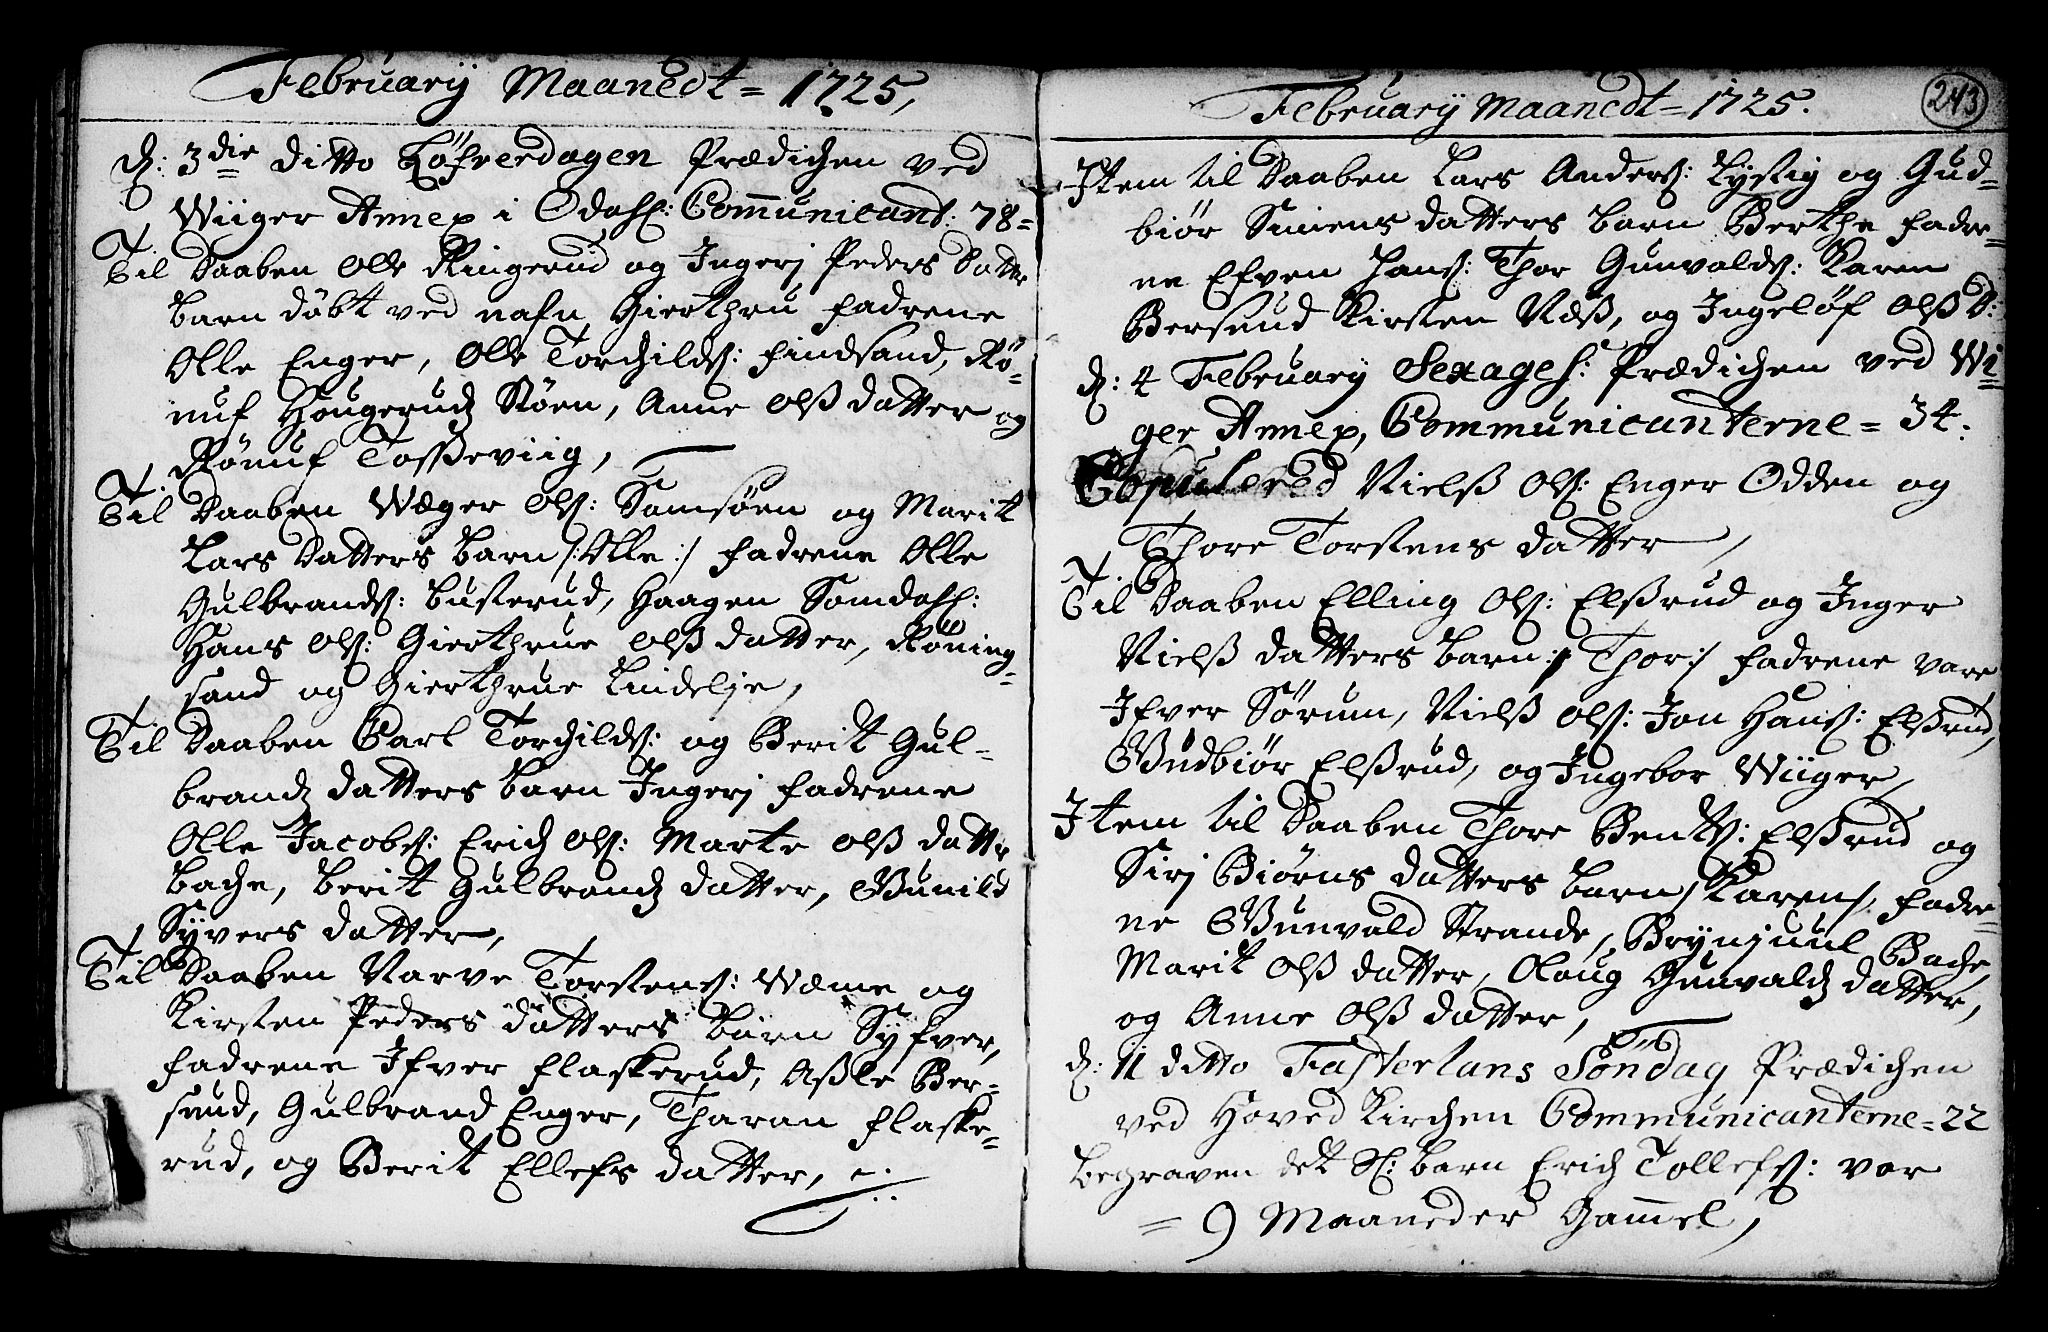 Februarÿ Maanedt = 1725,
d: 3die ditto Løfverdagen Prædichen ved
Wiiger Annex i Odahl: Com̄unicant: 78=
Til Daaben Olle Ringerud og Ingerj Peders Datter
barn döbt ved nafn Gierthru fadrene
Olle Enger, Olle Torchilds: findsand, Rö-
nuf Hougeruds Köen, Anne Olß datter og
Rönuf Toßeviig,
Til Daaben Wæger Ols: Samsöen og Marit
Lars Datters barn /: Olle :/ fadrene Olle
Gulbrands: busterud, Haagen Somdahl:
Hans Ols: Gierthrue Olß datter, Röning-
sand og Gierthrue Lindelje,
Til Daaben Carl Torchilds: og Berit Gul-
brands datters barn Ingerj fadrene
Olle Jacobs: Erich Ols: Marte Olß datter
bache, berit Gulbrands datter, Gunild
Syvers datter,
Til Daaben Narve Torstens: Wæme og
Kirsten Peders datters barn Syfver,
fadrene Ifver flaskerud, Aßle Ber-
send, Gulbrand Enger, Tharan flaske-
rud, og Berit Ellefs datter,
Februarÿ Maanedt = 1725.
243
Item til Daaben Lars Anders: Lystig og Gud-
biör Simens datters barn Berthe fadre-
ne Efven Hans: Thor Gunvalds: Karen
Bersend Kirsten Næß, og Ingelöf Olß D:
d: 4 Februarÿ Sexages: Prædichen ved Wi-
ger Annex, Communicanterne = 34:
Copulered Nielß Ols: Enger Odden og
Thore Torstens datter,
Til Daaben Elling Ols: Elßrud og Inger
Nielß datters barn /: Thor :/ fadrene vare
Ifver Sørum, Nielß Ols: Jon Hans: Elßrud,
Gudbiör Elßrud, og Ingebor Wiiger,
Item til Daaben Thore Bents: Elßrud og
Sirj Biörns datters barn / Karen /, fadre-
ne Gunvald Strande, Brynjuul Bache,
Marit Olß datter, Olaug Gunvalds datter,
og Anne Olß datter,
d: 11 ditto Fasterlans Söndag Prædichen
ved Hoved Kirchen Communicanterne = 22
begraven det Sl: barn Erich Tollefs: var
= 9 Maaneder Gam̄el,